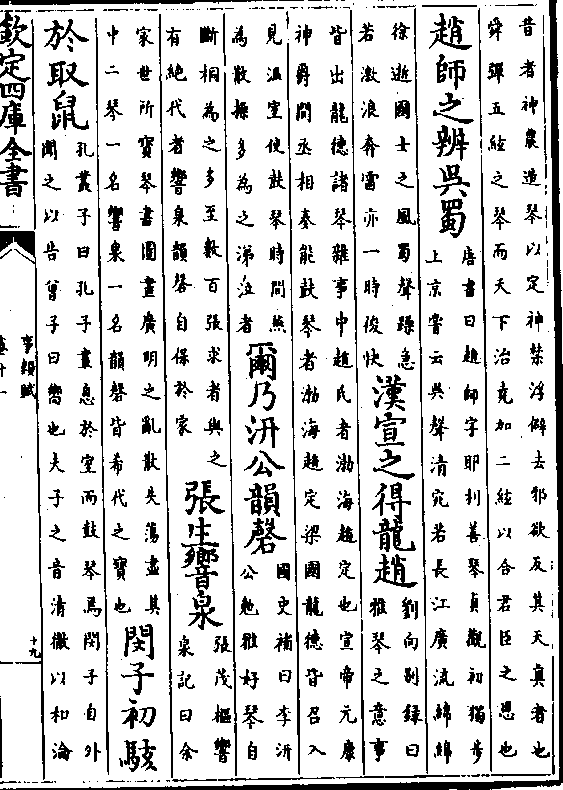 昔者神農造琴以定神禁淫僻去邪欲反其天真者也
舜彈五絃之琴而天下治堯加二絃以合君臣之恩也
趙師之辨吳蜀
唐書曰趙師字耶利善琴貞觀初獨步
上京嘗云吳聲清宛若長江廣流綿綿
徐逝國士之風蜀聲躁急
若激浪奔雷亦一時俊快
漢宣之得龍趙
劉向别録曰
雅琴之意事
皆出龍德諸琴雜事中趙氏者渤海趙定也宣帝元康
神爵間丞相奏能鼓琴者渤海趙定梁國龍德皆召入
見温室使鼓琴時間燕
為散操多為之涕泣者
爾乃汧公韻磬
國史補曰李汧
公勉雅好琴自
斷桐為之多至數百張求者與之
有絶代者響泉韻磬自保於家
張生響泉
張茂樞響
泉記曰余
家世所寶琴書圖畫廣明之亂散失蕩盡其
中二琴一名響泉一名韻磬皆希代之寶也
閔子初駭
於取鼠
孔叢子曰孔子晝息於室而鼓琴焉閔子自外
聞之以告曾子曰嚮也夫子之音清徹以和淪
欽定四庫全書
事類賦
卷十一
十九